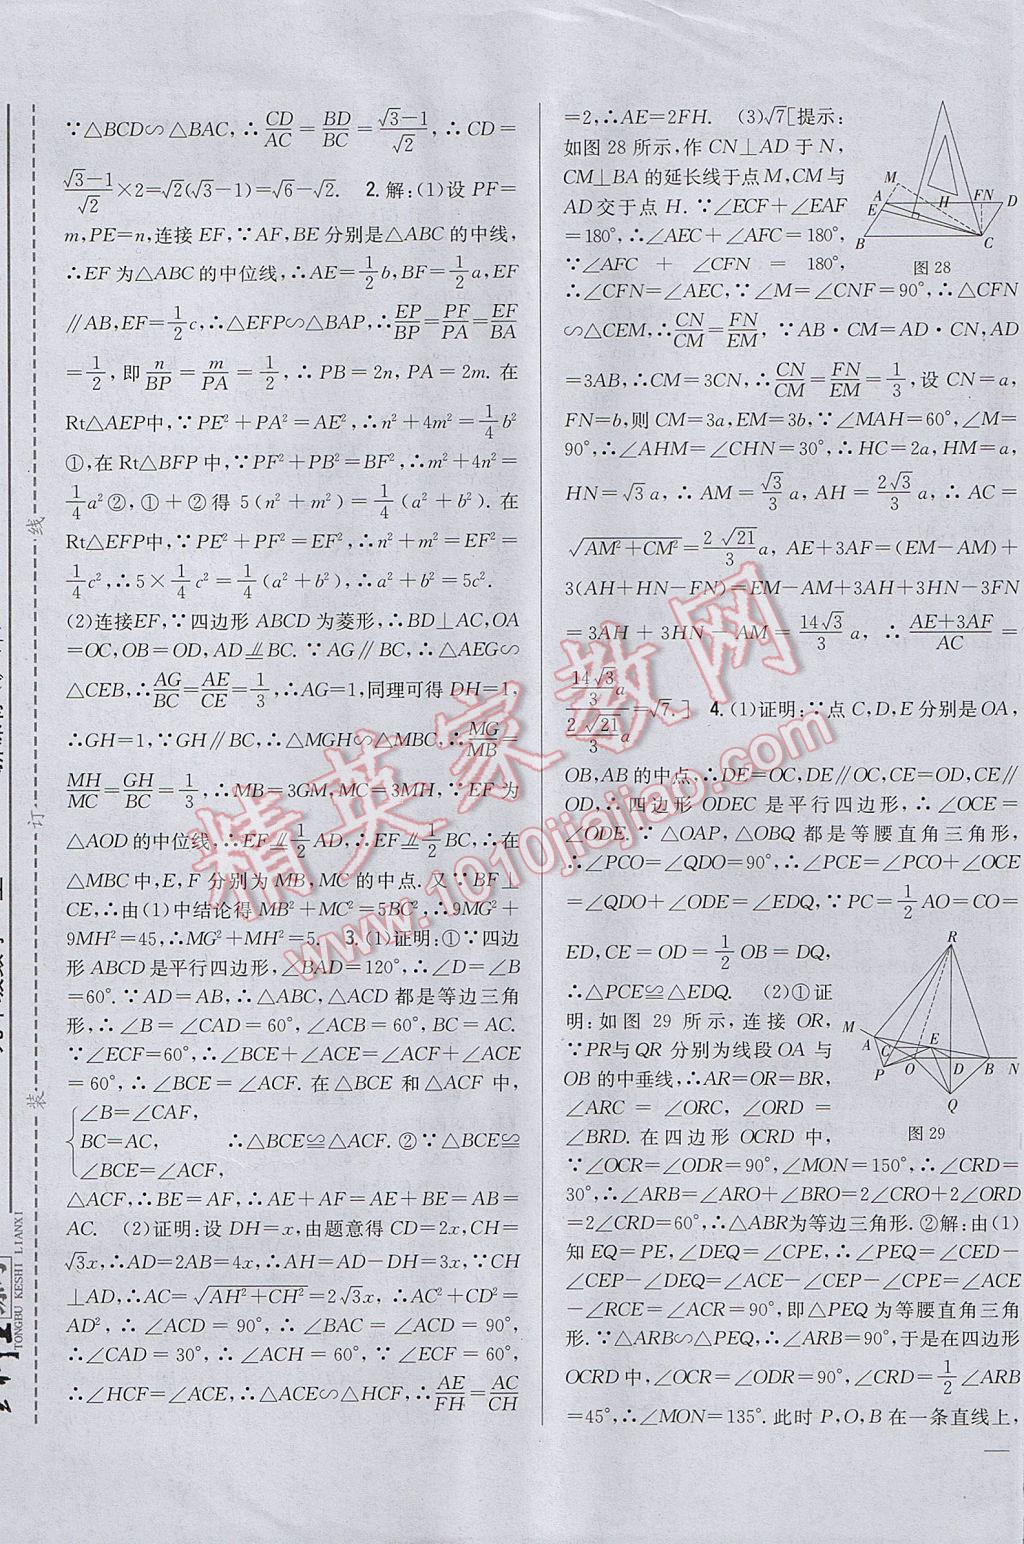 ∵△BCD∽△BAC,∴CD/AC=BD/BC=(√3-1)/√2,∴CD=
(√3-1)/√2×2=√2(√3-1)=√6-√2. 2.解:(1)设PF=
m,PE=n,连接EF,∵AF,BE分别是△ABC的中线,
∴EF为△ABC的中位线,∴AE=1/2b,BF=1/2a,EF
∥AB,EF=1/2c,∴△EFP∽△BAP,∴EP/BP=PF/PA=EF/BA
=1/2,即n/BP=m/PA=1/2,∴PB=2n,PA=2m.在
Rt△AEP中,∵PE²+PA²=AE²,∴n²+4m²=1/4b²
①,在Rt△BFP中,∵PF²+PB²=BF²,∴m²+4n²=
1/4a²②,①+②得5(n²+m²)=1/4(a²+b²).在
Rt△EFP中,∵PE²+PF²=EF²,∴n²+m²=EF²=
1/4c²,∴5×1/4c²=1/4(a²+b²),∴a²+b²=5c².
(2)连接EF,∵四边形ABCD为菱形,∴BD⊥AC,OA
=OC,OB=OD,AD∥=BC.∵AG∥BC,∴△AEG∽
△CEB,∴AG/BC=AE/CE=1/3,∴AG=1,同理可得DH=1,
∴GH=1,∵GH∥BC,∴△MGH∽△MBC,∴MG/MB=
MH/MC=GH/BC=1/3,∴MB=3GM,MC=3MH,∵EF为
△AOD的中位线,∴EF∥=1/2AD,∴EF∥=1/2BC,∴在
△MBC中,E,F分别为MB,MC的中点.又∵BF⊥
CE,∴由(1)中结论得MB²+MC²=5BC²,∴9MG²+
9MH²=45,∴MG²+MH²=5. 3.(1)证明:①∵四边
形ABCD是平行四边形,∠BAD=120°,∴∠D=∠B
=60°.∵AD=AB,∴△ABC,△ACD都是等边三角
形,∴∠B=∠CAD=60°,∠ACB=60°,BC=AC.
∵∠ECF=60°,∴∠BCE+∠ACE=∠ACF+∠ACE
=60°,∴∠BCE=∠ACF.在△BCE和△ACF中,
∠B=∠CAF,
BC=AC, ∴△BCE≌△ACF.②∵△BCE≌
∠BCE=∠ACF,
△ACF,∴BE=AF,∴AE+AF=AE+BE=AB=
AC. (2)证明:设DH=x,由题意得CD=2x,CH=
√3x,∴AD=2AB=4x,∴AH=AD-DH=3x,∵CH
⊥AD,∴AC=√(AH²+CH²)=2√3x,∴AC²+CD²=
AD²,∴∠ACD=90°,∴∠BAC=∠ACD=90°,
∴∠CAD=30°,∴∠ACH=60°,∵∠ECF=60°,
∴∠HCF=∠ACE,∴△ACE∽△HCF,∴AE/FH=AC/CH
=2,∴AE=2FH. (3)√7[提示:
如图28所示,作CN⊥AD于N,
CM⊥BA的延长线于点M,CM与
AD交于点H.∵∠ECF+∠EAF
=180°,∴∠AEC+∠AFC=180°,
∵∠AFC+∠CFN=180°,
M A E B H F N D C
图28
∴∠CFN=∠AEC,∵∠M=∠CNF=90°,∴△CFN
∽△CEM,∴CN/CM=FN/EM,∵AB·CM=AD·CN,AD
=3AB,∴CM=3CN,∴CN/CM=FN/EM=1/3,设CN=a,
FN=b,则CM=3a,EM=3b,∵∠MAH=60°,∠M=
90°,∴∠AHM=∠CHN=30°,∴HC=2a,HM=a,
HN=√3a,∴AM=√3/3a,AH=2√3/3a,∴AC=
√(AM²+CM²)=2√21/3a,AE+3AF=(EM-AM)+
3(AH+HN-FN)=EM-AM+3AH+3HN-3FN
=3AH+3HN AM=14√3/3a,∴(AE+3AF)/AC=
(14√3/3a)/(2√21/3a)=√7.] 4.(1)证明:∵点C,D,E分别是OA,
OB,AB的中点,∴DE=OC,DE∥OC,CE=OD,CE∥
OD,∴四边形ODEC是平行四边形,∴∠OCE=
∠ODE.∵△OAP,△OBQ都是等腰直角三角形,
∴∠PCO=∠QDO=90°,∴∠PCE=∠PCO+∠OCE
=∠QDO+∠ODE=∠EDQ,∵PC=1/2AO=CO=
ED,CE=OD=1/2OB=DQ,
∴△PCE≌△EDQ. (2)①证
明:如图29所示,连接OR,
∵PR与QR分别为线段OA与
OB的中垂线,∴AR=OR=BR,
∠ARC=∠ORC,∠ORD=
∠BRD.在四边形OCRD中,
R M A C E P O D B N Q
图29
∵∠OCR=∠ODR=90°,∠MON=150°,∴∠CRD=
30°,∴∠ARB=∠ARO+∠BRO=2∠CRO+2∠ORD
=2∠CRD=60°,∴△ABR为等边三角形.②解:由(1)
知EQ=PE,∠DEQ=∠CPE,∴∠PEQ=∠CED-
∠CEP-∠DEQ=∠ACE-∠CEP-∠CPE=∠ACE
-∠RCE=∠ACR=90°,即△PEQ为等腰直角三角
形.∵△ARB∽△PEQ,∴∠ARB=90°,于是在四边形
OCRD中,∠OCR=∠ODR=90°,∠CRD=1/2∠ARB
=45°,∴∠MON=135°.此时P,O,B在一条直线上,
装 订 线
TONGBU KESHI LIANXI
精英家教网
www.1010jiajiao.com